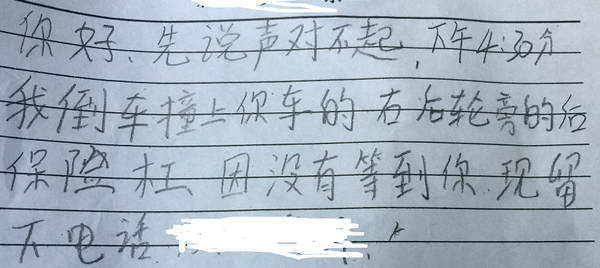 你好、先说声对不起,下午4:30分
我倒车撞上你车的右后轮旁的后
保险杠 因没有等到你.现留
下电话